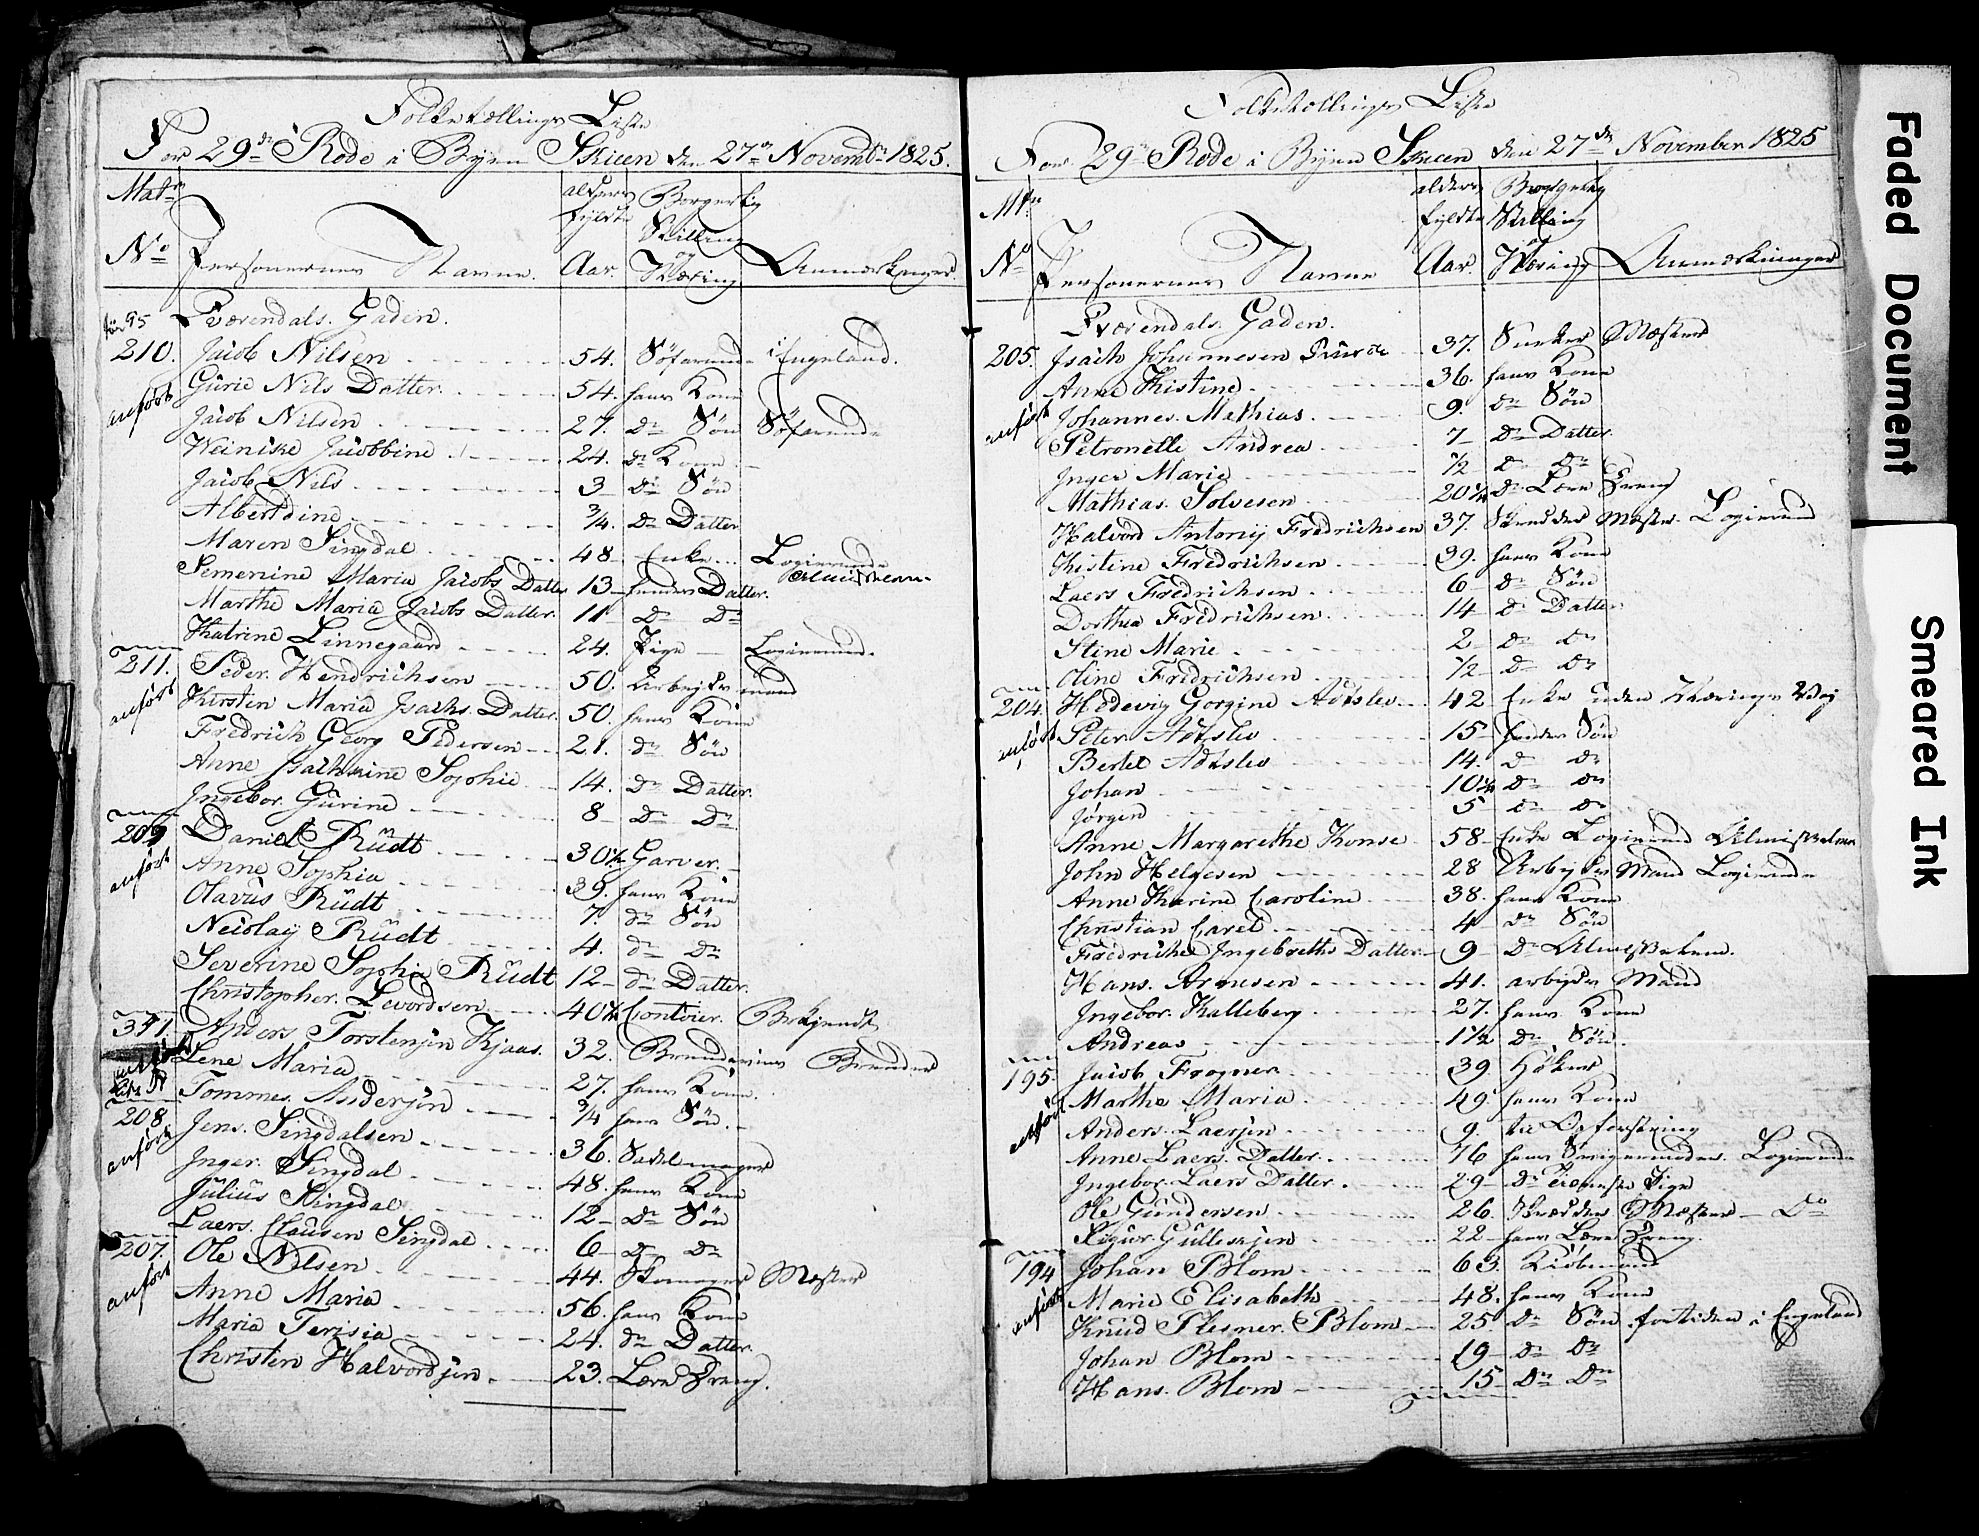 Folketællings Liste
For 29de Rode i Byen Skien den 27de Novembr 1825.
Matr No Personernes Navne. alders fyldte Aar. Borgerlig Stilling og Næring Anmærkninger.
95 Tværendals. Gaden.
210. Jacob Nilsen 54. Söfarende i Engeland.
anført Gurie Nils Datter. 54. hans Kone
Jacob Nilsen 27. do Sön Söfarende
Jacobbine 24. do Kone
Jacob Nils 3 do Sön
Albertdine 3/4. do Datter
Maren Singdal 48 Enke Logerende
Semenine Maria Jacobs Datter 13 hendes Datter.
Marthe Maria Jacobs Datter. 11 do do
Katrine Linnegaard 24. Pige Logerende.
211. Peder. Hendrichsen 50. Arbeyds mand
anført Kirsten Maria Isachs. Datter. 50. hans Kone
Fredrich Georg Pedersen 21. do Sön
Anne Sophie 14. do Datter.
Ingebor. Gurine 8 do do
209 Daniel Rüdt 30 1/2 Garver.
anført Anne Sophia 39. hans Kone
Olavus Rüdt 7. do Sön
Nicolay Rüdt 4. do do
Severine Sophie Rüdt 12 do Datter.
Christopher. Levordsen 40 1/2 Contoier.
Anders Torstensen Kjaas. 32. Brænder
Lene Maria 27. hans Kone.
Tommes Andersen 3/4 hans Sön.
208. Jens. Singdalsen 36. Sadelmager
anført Inger. Singdal 48. hans Kone
Julius Singdal 12 do Sön
Laers. Clausen Singdal 6 do do
207. Ole Nilsen 44. Skomager Mester
anført Anne Maria 56. hans Kone
Maria Terisia 24. do Datter.
Christen Halvordsen 23. Lære Dreng.
Folketællings Liste
For 29de Rode i Byen Skien den 27de November 1825
No Personernes Navne alders fyldte Aar Borgerlig Stilling Næring Anmærkninger
Tværendals. Gaden.
205. Isach Johannesen 37. Snecker Mæster
Anne Kistine 36. hans Kone
anført Johannes. Mathias. 9. do Sön
Petronelle Andrea 7 do Datter.
Inger Marie 1/2 do do
Mathias. Solvesen 20 1/2 do Lære Dreng
Halvord Antonij Fredrichsen 37. Skredder Mester. Logerende
Kistine Fredrichsen 39. hans Kone
Laers Fredrichsen 6 do Sön
Dorthea Fredrichsen 14 do Datter
Stine Marie 2 do do
Oline Fredrichsen 1/2 do do
204. Hedevig Gorgine Adtslev 42 Enke uden Nærings Vej
anført Peter Adtslev 15 hendes Sön
Bertel Adtslev 14. do do
Johan 10 1/2 do do
Jørgen 5 do do
Anne Margarethe 58 Enke Logerende
John Helgesen 28 Arbejds Mand Logerende
Anne Karine Caroline 38. hans Kone
Christian Carel 4 do Sön
Fredriche Ingebreths Datter 9 do
Hans. Arnesen 41. arbejds Mand
Ingebor. Kalleberg 27. hans Kone
Andreas 1 1/2 do Sön.
195. Jacob Frogner 39 Høker
Marthe Maria 49. hans Kone
anført Anders. Laersen 9. til Opfostring
Anne Laers. Datter 76 hans Svigermoder. Logerende
Ingebor. Laers Datter 29 do Pige
Ole Gundersen 26. Skredder Mester do
Gullichsen 22 hans Lære Dreng.
194 Johan Blom 63. Kiöbmand
Marie Elisabeth 48. hans Kone
anført Knud Plesner. Blom 25. do Sön fortiden i Engeland
Johan Blom 19 do do
Hans. Blom 15 do do
Faded Document
Smeared Ink